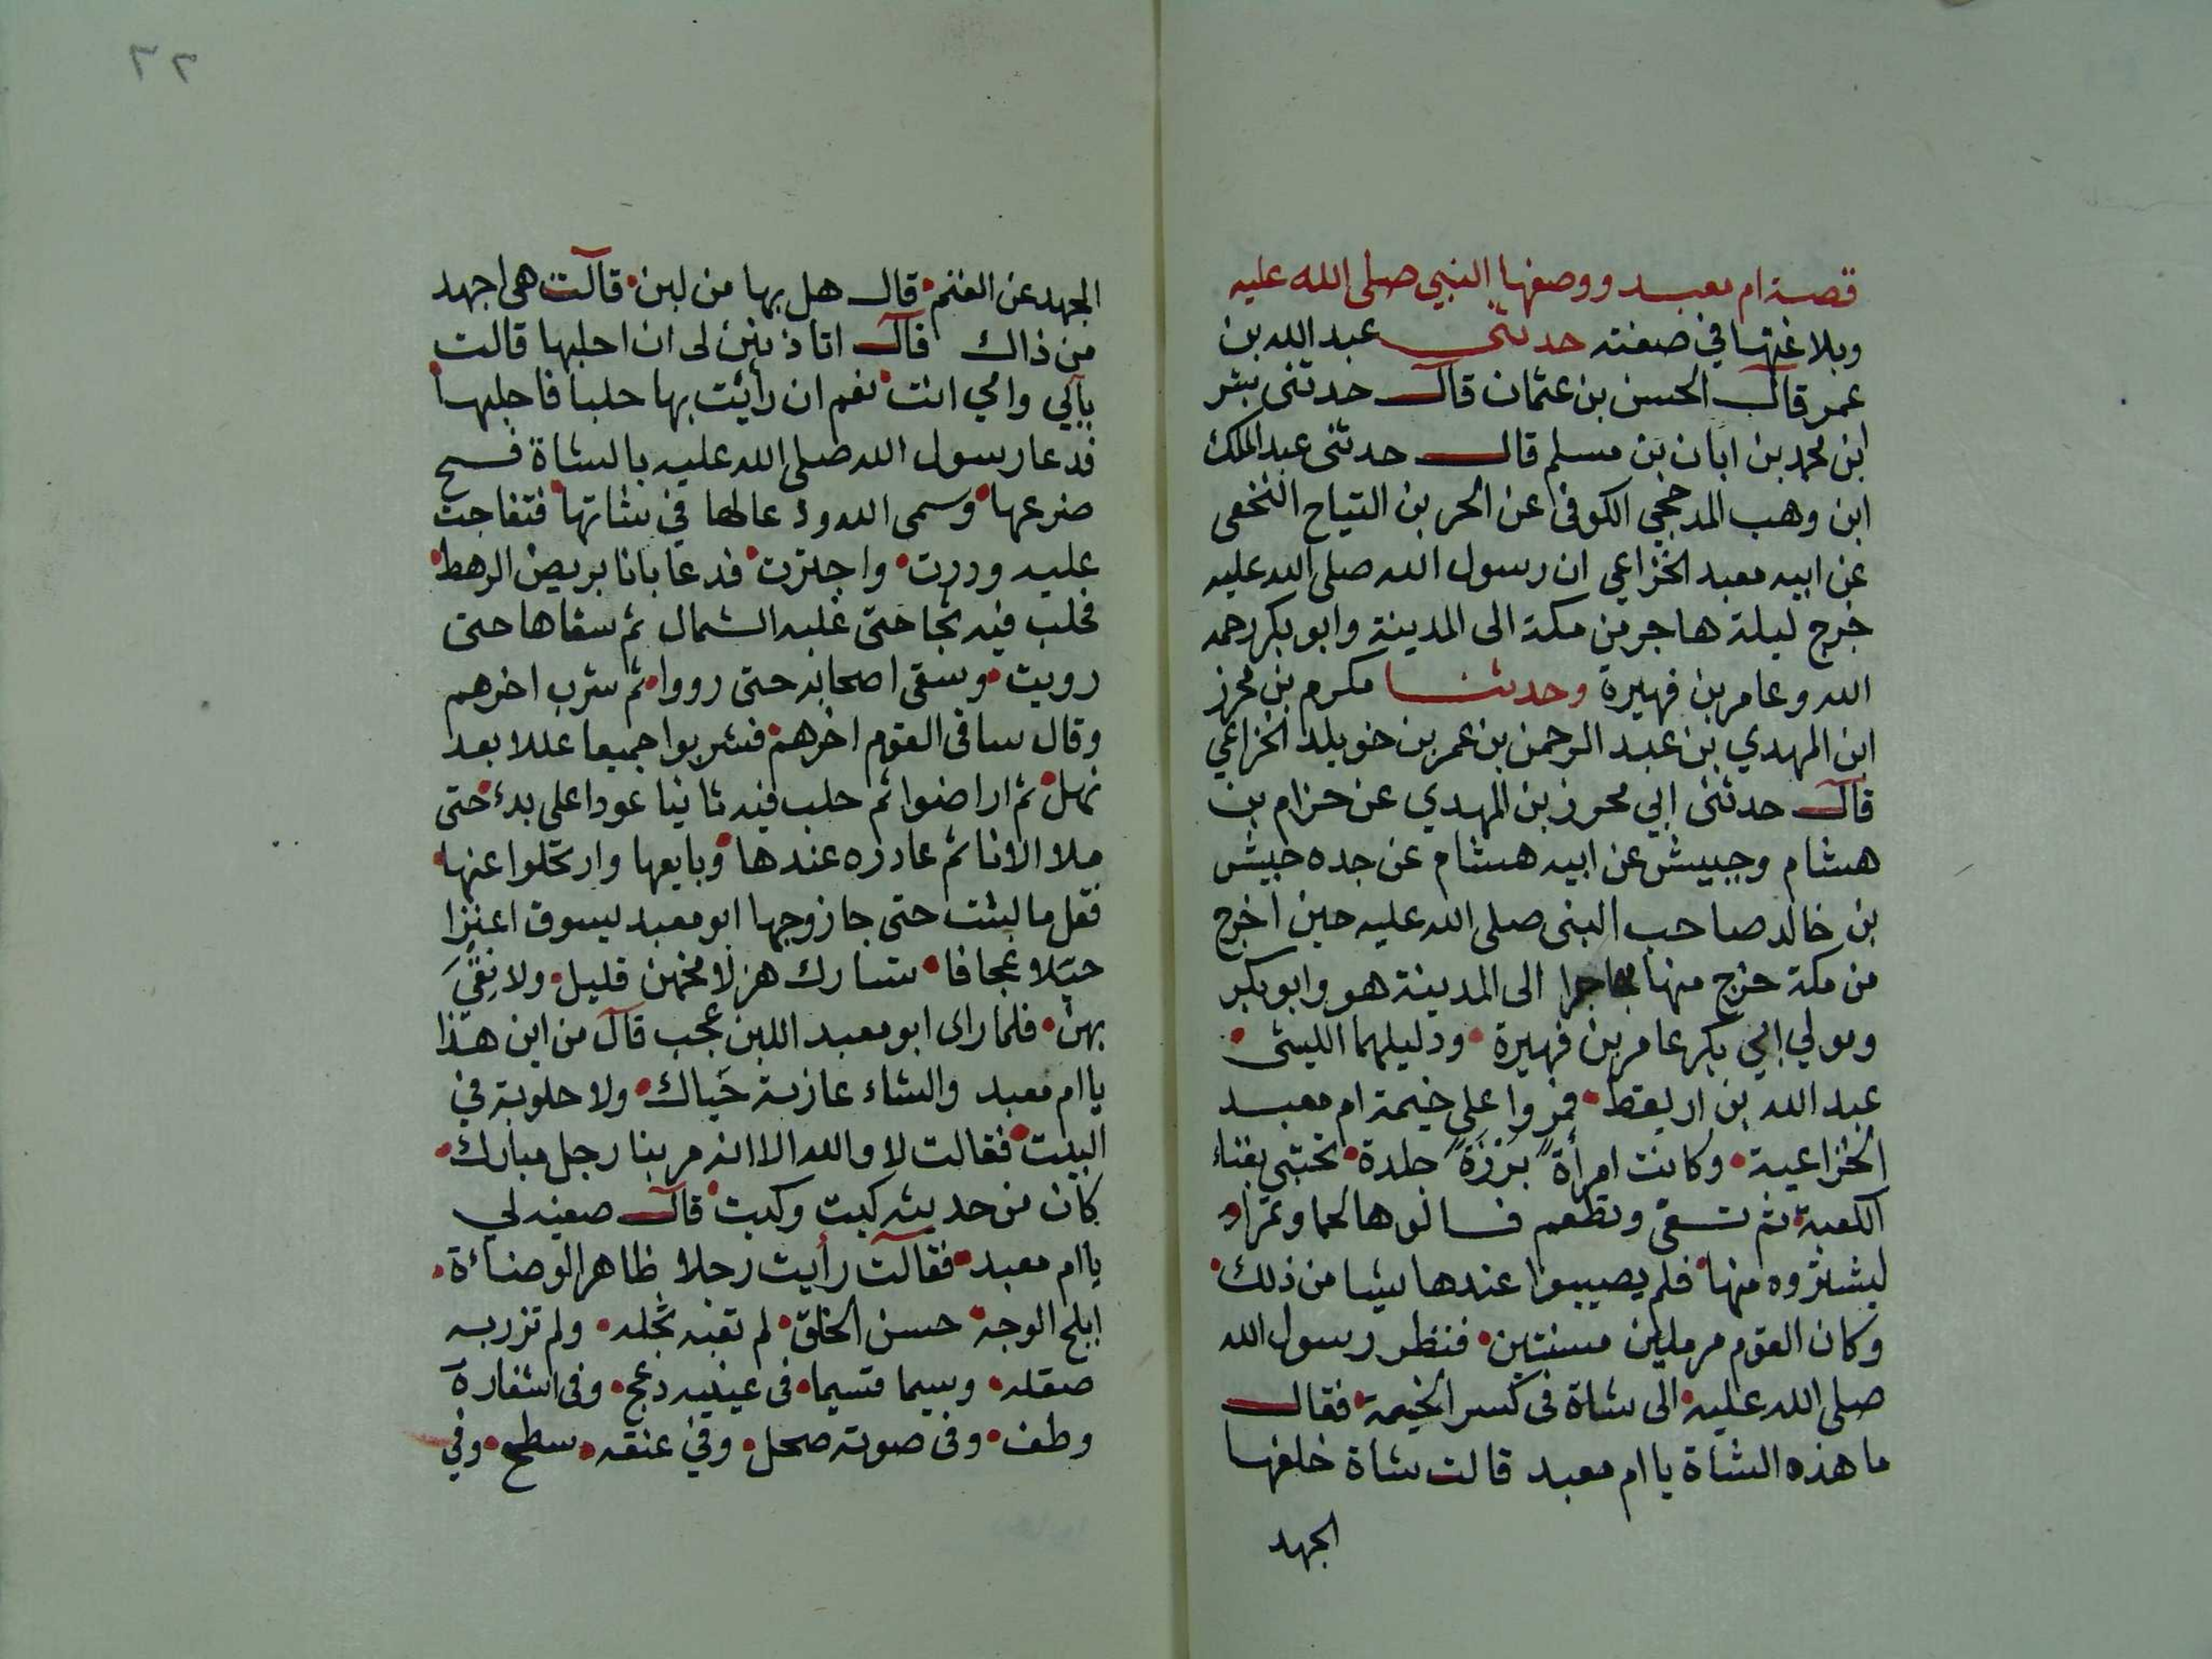 قصة ام معبد ووصفها النبي صلى الله عليه
وبلاغتها في صفته حدثني عبد الله بن
عمر قال الحسن بن عثمان قال حدثنى بشر
ابن محمد بن ابان بن مسلم قال حدثنى عبد الملك
ابن وهب المدحجي الكوفى عن الحر بن التياح النخعى
عن ابيه معبد الخزاعي ان رسول الله صلى الله عليه
خرج ليلة هاجر من مكة الى المدينة وابو بكر رحمه
الله وعامر بن فهيرة وحدثنا مكرم بن محرز
ابن المهدي بن عبد الرحمن بن عمر بن خويلد الخزاعي
قال حدثنى ابي محرز بن المهدي عن حزام بن
هشام وحبيش عن ابيه هشام عن جده حبيش
بن خالد صاحب النبى صلى الله عليه حين اخرج
من مكة خرج منها مهاجرا الى المدينة هو وابو بكر
ومولي ابي بكر عامر بن فهيرة ودليلهما الليثى
عبد الله بن اريقط فمروا على خيمة ام معبد
الخزاعية وكانت امرأة برزة جلدة تحتبى بفناء
الكعبة ثم تسقى وتطعم فسالوها لحما وتمرا
ليشتروه منها فلم يصيبوا عندها شيئا من ذلك
وكان القوم مرملين مسنتين فنظر رسول الله
صلى الله عليه الى شاة فى كسر الخيمة فقال
ما هذه الشاة يا ام معبد قالت شاة خلفها
الجهد
٢٢
الجهد عن الغنم قال هل بها من لبن قالت هى اجهد
من ذاك قال اتاذنين لى ان احلبها قالت
بابي وامي انت نعم ان رأيت بها حلبا فاحلبها
فدعا رسول الله صلى الله عليه بالشاة فمسح
ضرعها وسمى الله ودعا لها في شاتها فتفاجت
عليه ودرت واجترت فدعا بانا يربض الرهط
فحلب فيه ثجا حتى غلبه الثمال ثم سقاها حتى
رويت وسقى اصحابه حتى رووا ثم شرب اخرهم
وقال ساقى القوم اخرهم فشربوا جميعا عللا بعد
نهل ثم اراضوا ثم حلب فيه ثانيا عودا على بدء حتى
ملا الانا ثم غادره عندها وبايعها وارتحلوا عنها
فقل ما لبثت حتى جا زوجها ابو معبد يسوق اعنزا
حيلا عجافا تشارك هزلا مخهن قليل ولا نقي
بهن فلما راى ابو معبد اللبن عجب قال من اين هذا
يا ام معبد والشاء عازبة حيال ولا حلوبة في
البيت فقالت لا والله الا انه مر بنا رجل مبارك
كان من حديثه كيت وكيت قال صفيه لي
يا ام معبد فقالت رأيت رجلا ظاهر الوضاءة
ابلج الوجه حسن الخلق لم تعبه ثجله ولم تزر به
صقله وسيما قسيما فى عينيه دعج وفى اشفاره
وطف وفى صوته صحل وفي عنقه سطع وفي